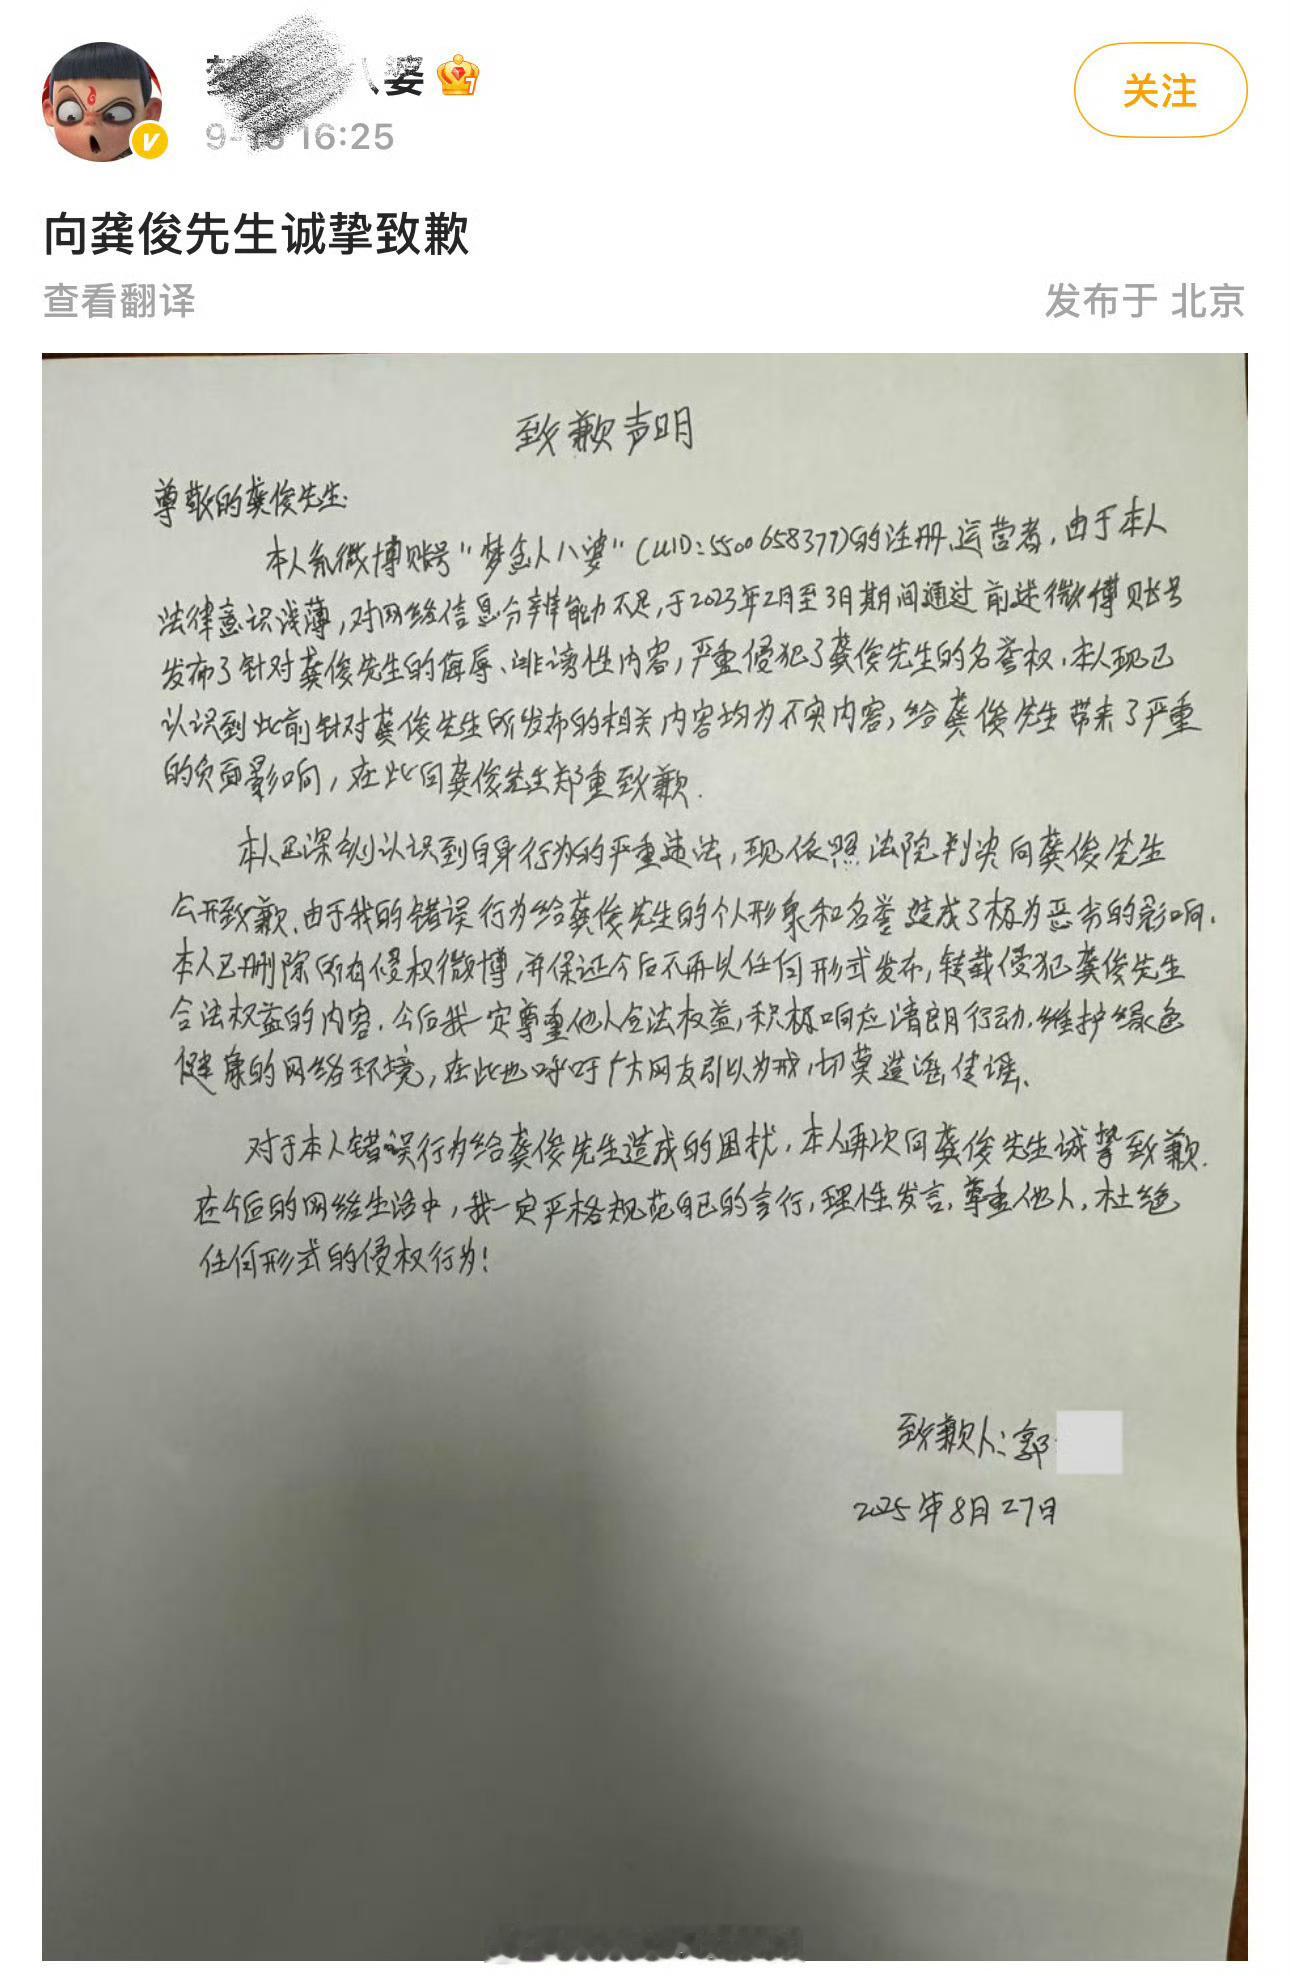 婆
16:25
关注
向龚俊先生诚挚致歉
查看翻译
发布于 北京
致歉声明
尊敬的龚俊先生:
本人系微博账号“梦念人八婆”(UID:5500658377)的注册、运营者,由于本人
法律意识浅薄,对网络信息分辨能力不足,于2023年2月至3月期间通过前述微博账号
发布了针对龚俊先生的侮辱、诽谤性内容,严重侵犯了龚俊先生的名誉权.本人现已
认识到此前针对龚俊先生所发布的相关内容均为不实内容,给龚俊先生带来了严重
的负面影响,在此向龚俊先生郑重致歉.
本人已深刻认识到自身行为的严重违法,现依照法院判决向龚俊先生
公开致歉.由于我的错误行为给龚俊先生的个人形象和名誉造成了极为恶劣的影响.
本人已删除所有侵权微博,并保证今后不再以任何形式发布,转载侵犯龚俊先生
合法权益的内容.今后我一定尊重他人合法权益,积极响应清朗行动.维护绿色
健康的网络环境,在此也呼吁广大网友引以为戒,切莫造谣、传谣.
对于本人错误行为给龚俊先生造成的困扰.本人再次向龚俊先生诚挚致歉.
在今后的网络生活中,我一定严格规范自己的言行,理性发言,尊重他人.杜绝
任何形式的侵权行为!
致歉人:郭
2025年8月27日